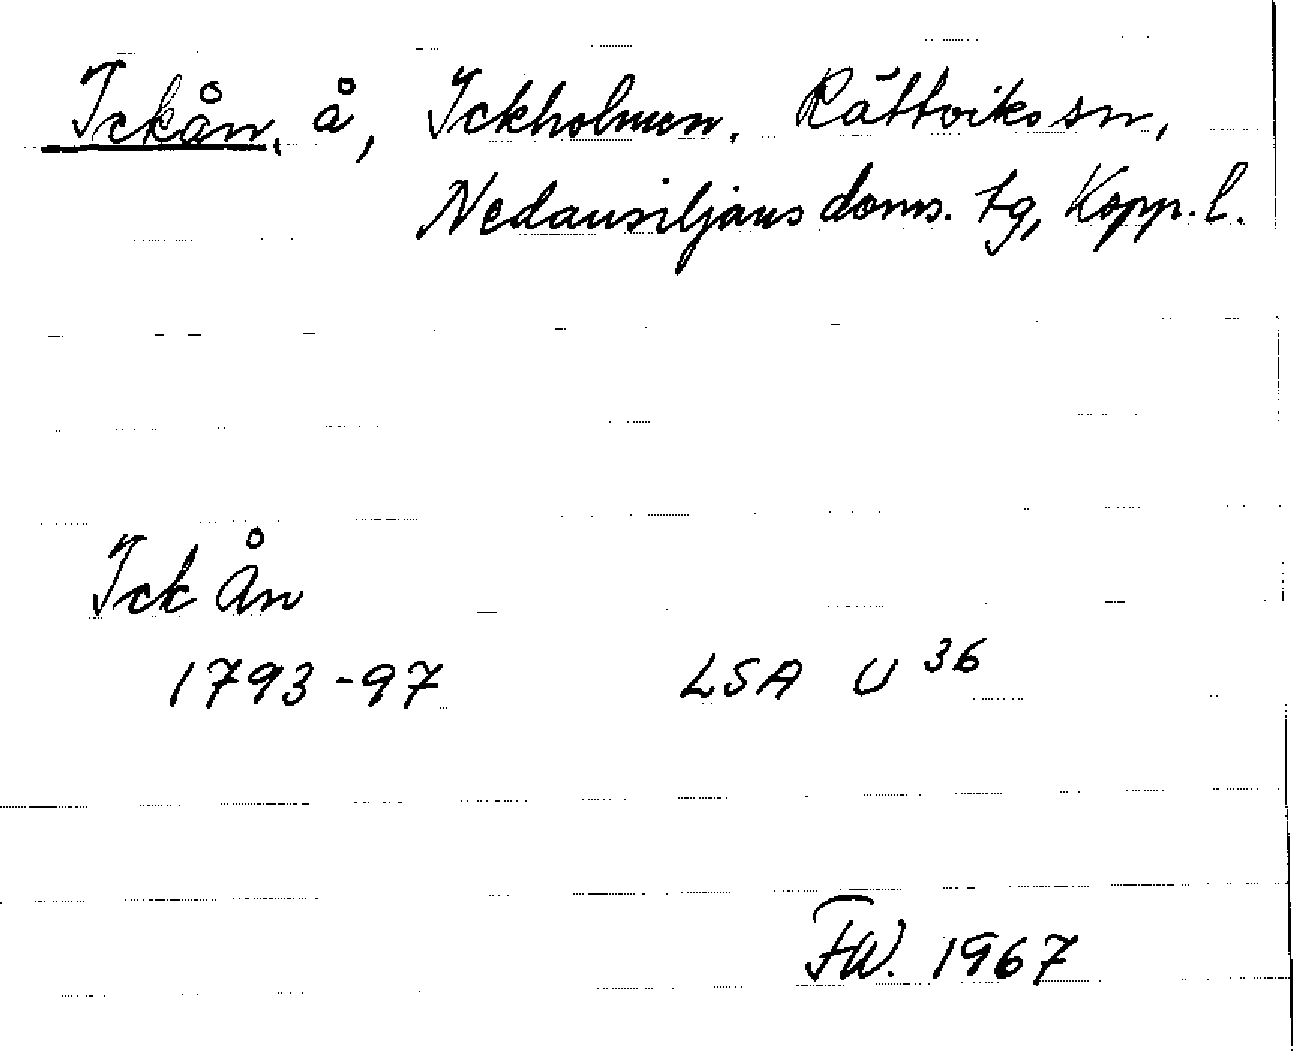 Ickån, å, Ickholmen. Rättviks sn,
Nedansiljans doms. tg, Kopp. l.
Ick Ån
1793-97 LSA U 36
FW. 1967